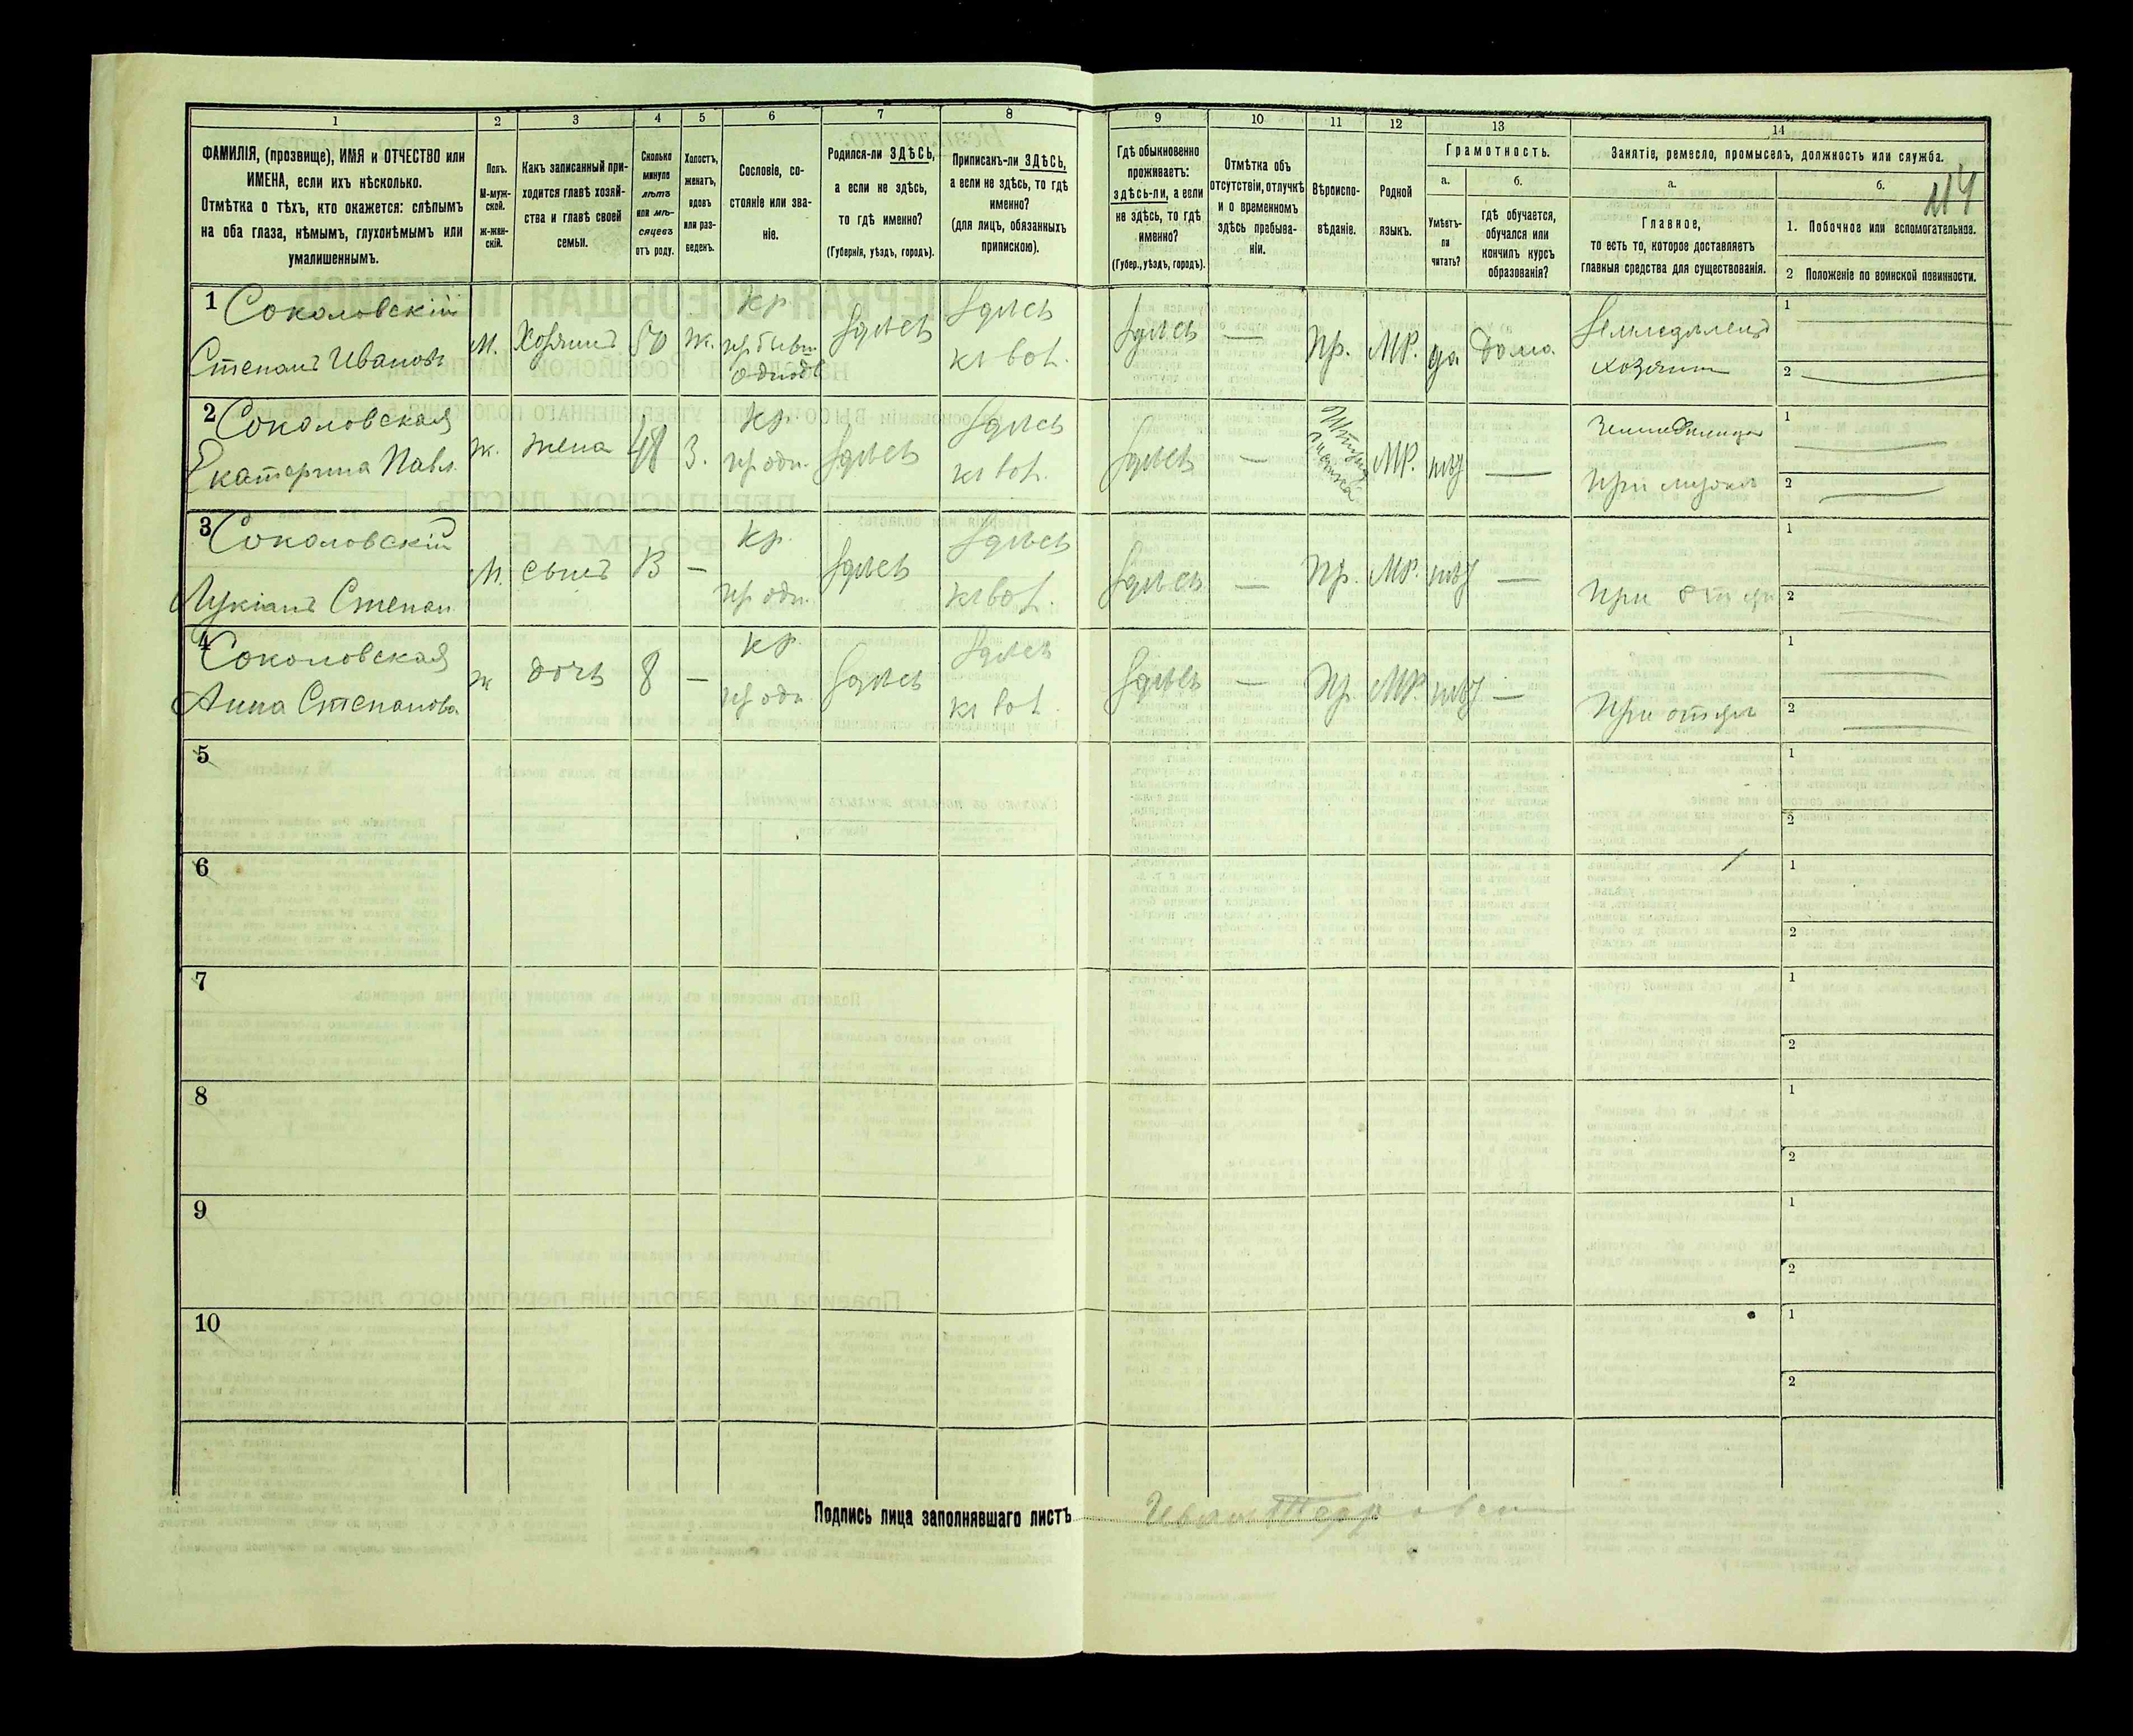 1
2
3
4
5
6
7
8
9
10
11
12
13
14
ФАМИЛІЯ, (прозвище), ИМЯ и ОТЧЕСТВО или
ИМЕНА, если ихъ нѣсколько.
Отмѣтка о тѣхъ, кто окажется: слѣпымъ
на оба глаза, нѣмымъ, глухонѣмымъ или
умалишеннымъ.
Полъ.
М-муж-
ской.
Ж-жен-
скій.
Какъ записанный при-
ходится главѣ хозяй-
ства и главѣ своей
семьи.
Сколько
минуло
лѣтъ
или мѣ-
сяцевъ
отъ роду.
Холостъ,
женатъ,
вдовъ
или раз-
веденъ.
Сословіе, со-
стояніе или зва-
ніе.
Родился-ли ЗДѢСЬ,
а если не здѣсь,
то гдѣ именно?
(Губернія, уѣздъ, городъ).
Приписанъ-ли ЗДѢСЬ,
а если не здѣсь, то гдѣ
именно?
(для лицъ, обязанныхъ
припискою).
Гдѣ обыкновенно
проживаетъ:
здѣсь-ли, а если
не здѣсь, то гдѣ
именно?
(Губер., уѣздъ, городъ).
Отмѣтка объ
отсутствіи, отлучкѣ
и о временномъ
здѣсь пребыва-
ніи.
Вѣроиспо-
вѣданіе.
Родной
языкъ.
Грамотность.
а.
Умѣетъ-
ли
читать?
б.
гдѣ обучается,
обучался или
кончилъ курсъ
образованія?
Занятіе, ремесло, промыселъ, должность или служба.
а.
Главное,
то есть то, которое доставляетъ
главныя средства для существованія.
б.
114
1. Побочное или вспомогательное.
2 Положеніе по воинской повинности.
1 Соколовскій
Степанъ Иванов
М. Хозяинъ 50 ж.
кр
Здѣсь
Здѣсь
Здѣсь — Пр. МР. да дома
Земледѣлецъ
хозяин
1
2
2 Соколовская
Екатерина Павл.
ж. жена 48 З.
кр.
пр одн.
Здѣсь
Здѣсь
Здѣсь — МР. нѣт —
При мужѣ
1
2
3 Соколовскій
Лукіанъ Степан
М. сынъ 13 —
кр.
пр одн.
Здѣсь
Здѣсь
Здѣсь — Пр. МР. нѣт —
При отцѣ
1
2
4 Соколовская
Анна Степанова
ж дочь 8 —
кр
пр одн
Здѣсь
Здѣсь
Здѣсь — Пр МР. нѣт —
При отцѣ
1
2
5
1
2
6
1
2
7
1
2
8
1
2
9
1
2
10
1
2
Подпись лица заполнявшаго листъ